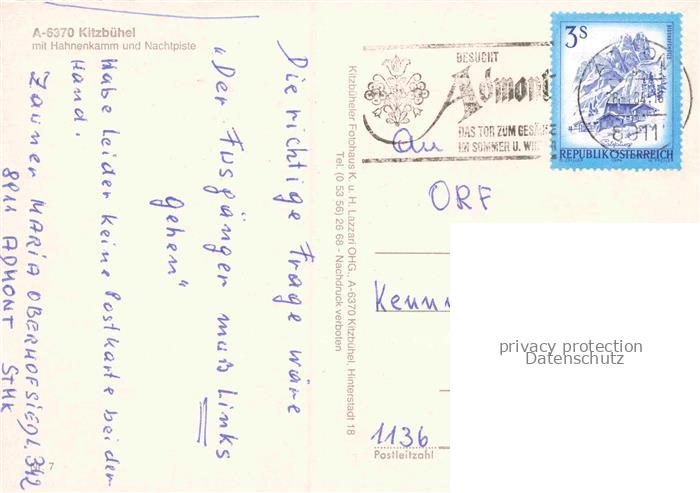 A-6370 Kitzbühel
mit Hahnenkamm und Nachtpiste
Die richtige Frage wäre
„Der Fusgänger muß Links
gehen"
Habe leider keine Postkarte bei der
Hand.
Zauner MARIA OBERHOFSIEDL. 342
8911 ADMONT STMK
7
Kitzbüheler Fotohaus K. u. H. Lazzari OHG., A-6370 Kitzbühel, Hinterstadt 18
Tel. (0 53 56) 26 68 - Nachdruck verboten
BESUCHT
Admont
DAS TOR ZUM GESÄU
IM SOMMER U. WIN
3S
REPUBLIK ÖSTERREICH
8911
An
ORF
Kenn
1136
Postleitzahl
privacy protection
Datenschutz